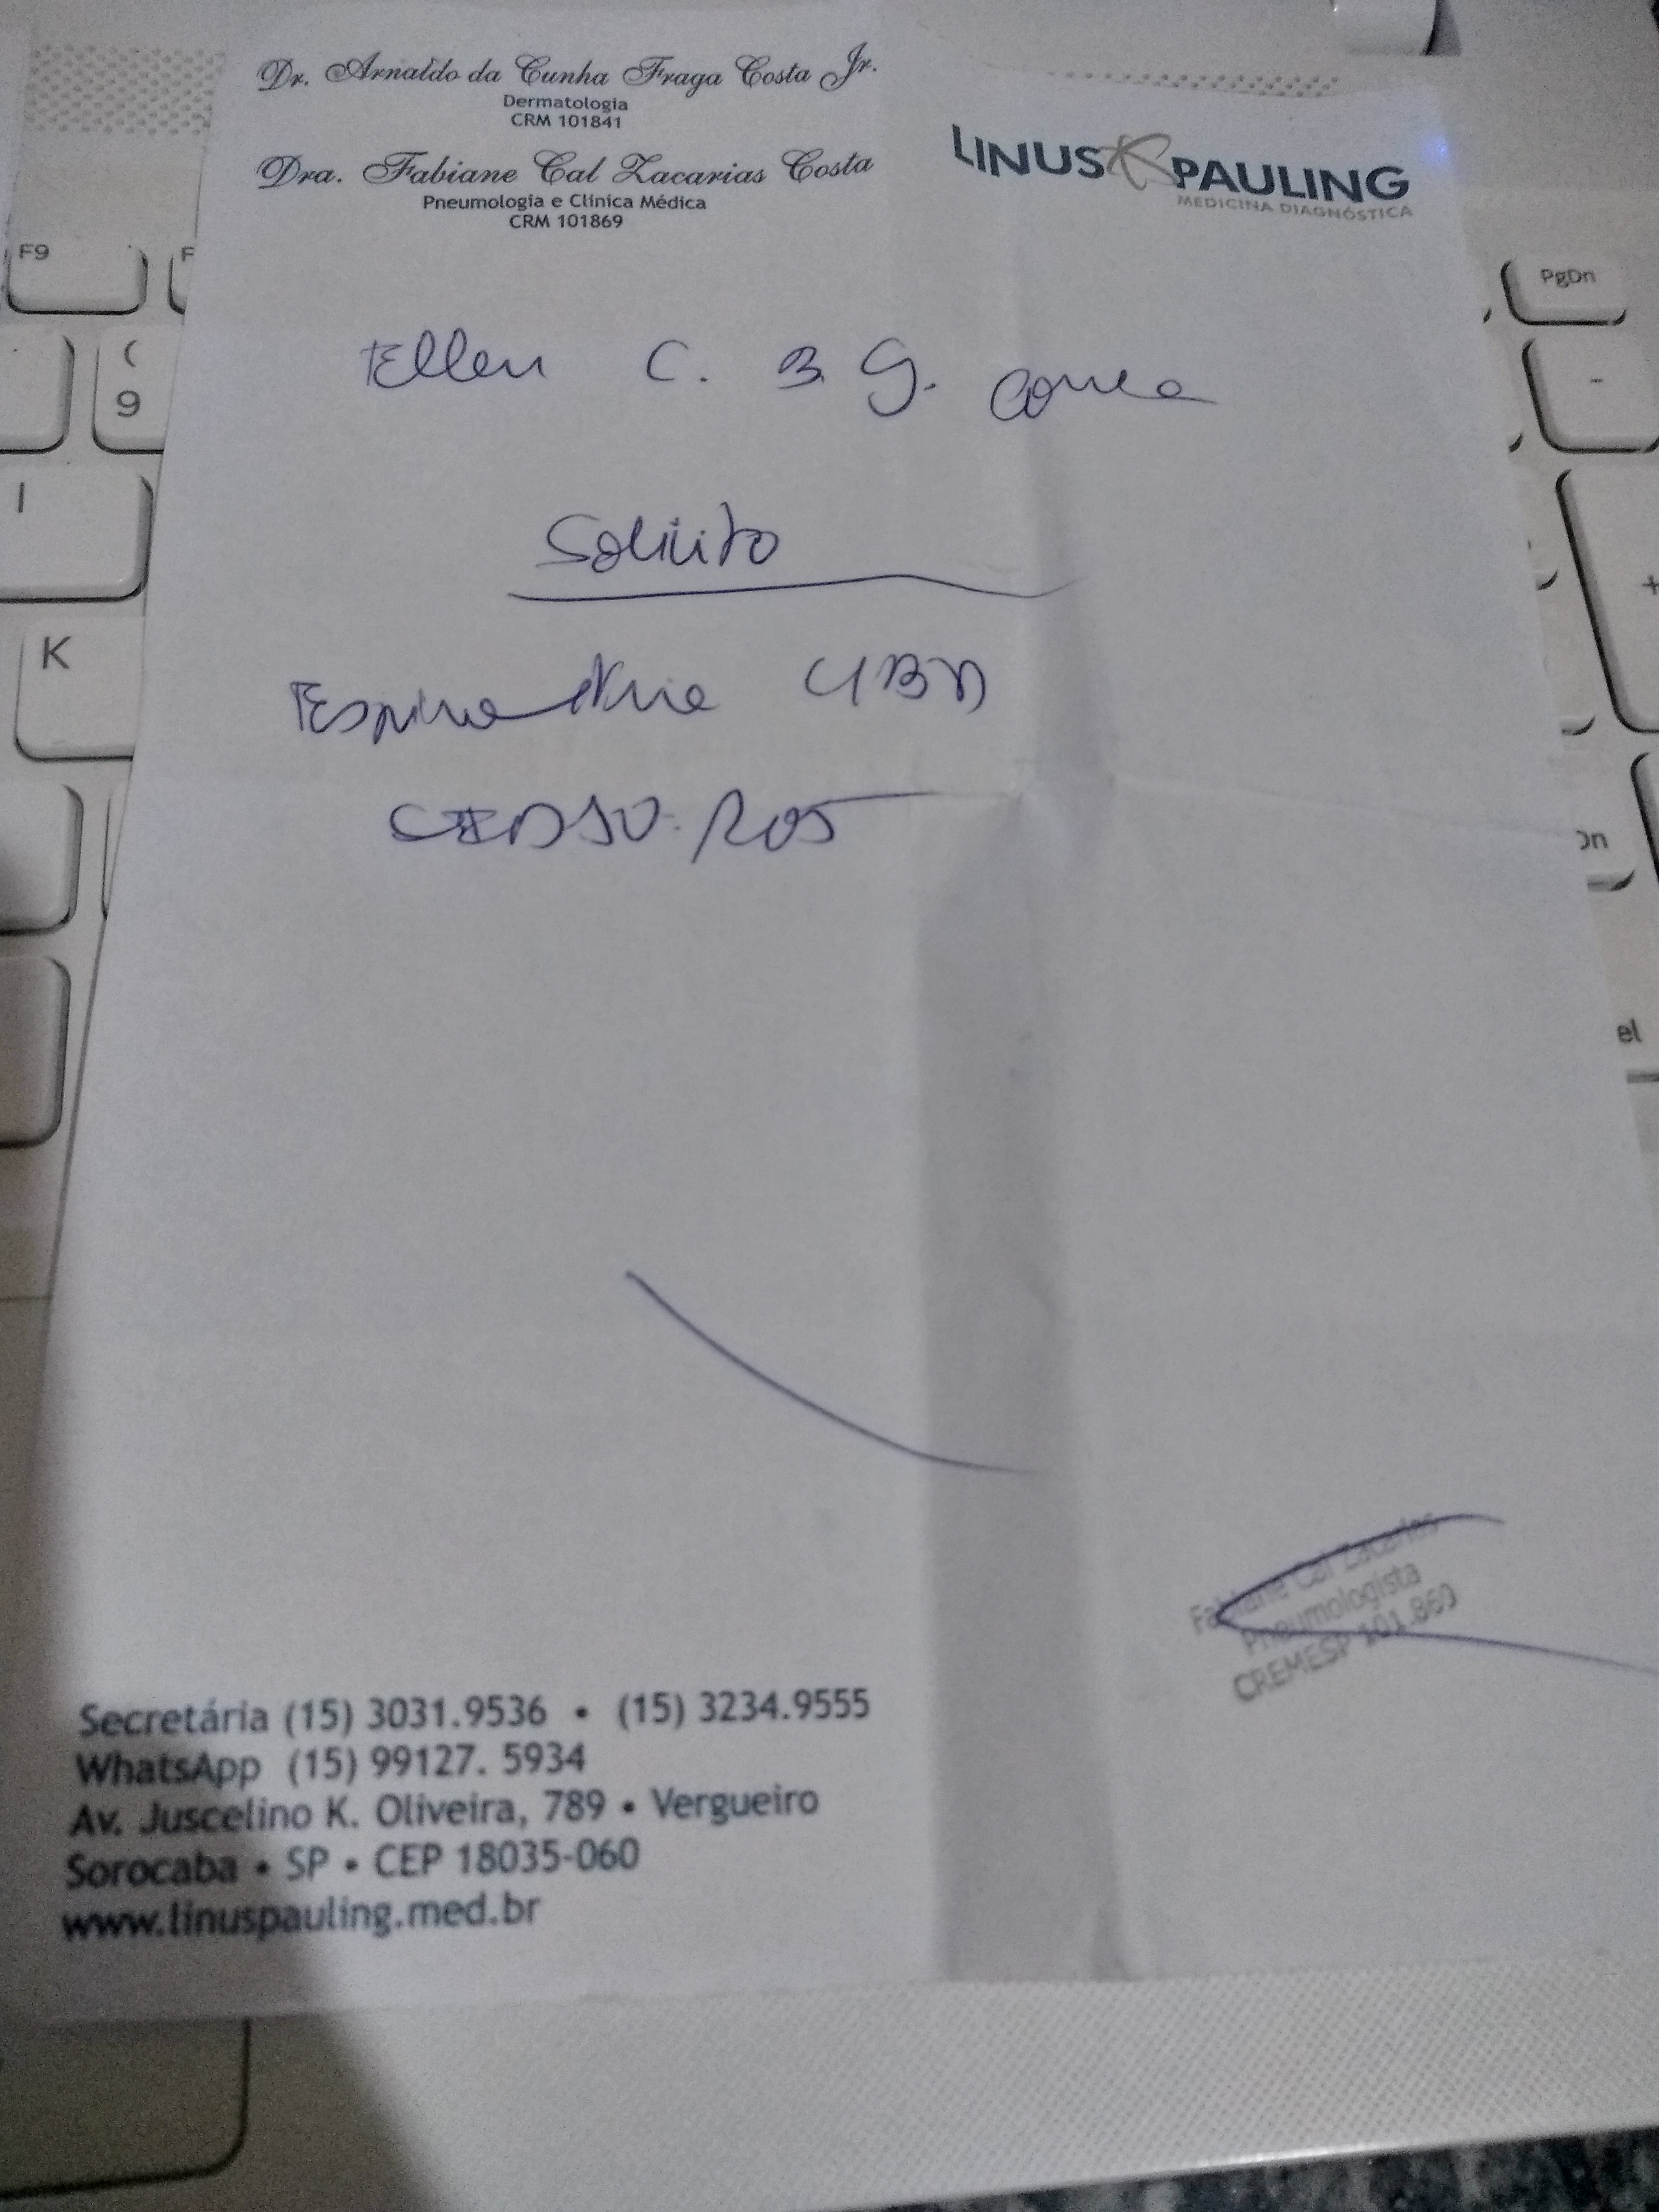 Dr. Arnaldo da Cunha Fraga Costa Jr.
Dermatologia
CRM 101841
Dra. Fabiane Cal Zacarias Costa
Pneumologia e Clínica Médica
CRM 101869
LINUS PAULING
MEDICINA DIAGNÓSTICA
Ellen C. B. G.
Solicito
Espirometria
Fabiane Cal Zacarias
Pneumologista
CREMESP 101.869
Secretária (15) 3031.9536 • (15) 3234.9555
WhatsApp (15) 99127. 5934
Av. Juscelino K. Oliveira, 789 • Vergueiro
Sorocaba • SP • CEP 18035-060
www.linuspauling.med.br
F9
F
(
9
I
K
PgDn
-
+
el